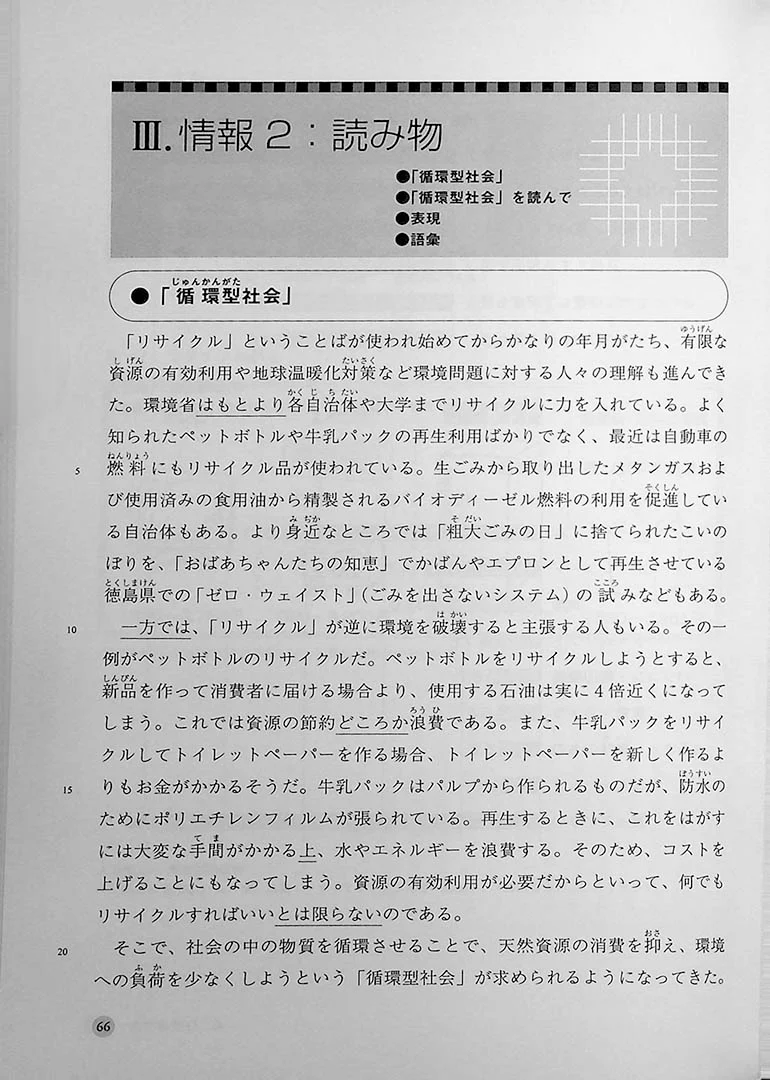 III. 情報2:読み物
●「循環型社会」
●「循環型社会」を読んで
●表現
●語彙
じゅんかんがた
●「循環型社会」
ゆうげん
「リサイクル」ということばが使われ始めてからかなりの年月がたち、有限な
しげん たいさく
資源の有効利用や地球温暖化対策など環境問題に対する人々の理解も進んでき
かくじちたい
た。環境省はもとより各自治体や大学までリサイクルに力を入れている。よく
知られたペットボトルや牛乳パックの再生利用ばかりでなく、最近は自動車の
ねんりょう
5 燃料にもリサイクル品が使われている。生ごみから取り出したメタンガスおよ
そくしん
び使用済みの食用油から精製されるバイオディーゼル燃料の利用を促進してい
みぢか そだい
る自治体もある。より身近なところでは「粗大ごみの日」に捨てられたこいの
ぼりを、「おばあちゃんたちの知恵」でかばんやエプロンとして再生させている
とくしまけん こころ
徳島県での「ゼロ・ウェイスト」(ごみを出さないシステム)の試みなどもある。
はかい
10 一方では、「リサイクル」が逆に環境を破壊すると主張する人もいる。その一
例がペットボトルのリサイクルだ。ペットボトルをリサイクルしようとすると、
しんぴん
新品を作って消費者に届ける場合より、使用する石油は実に4倍近くになって
ろうひ
しまう。これでは資源の節約どころか浪費である。また、牛乳パックをリサイ
クルしてトイレットペーパーを作る場合、トイレットペーパーを新しく作るよ
ぼうすい
15 りもお金がかかるそうだ。牛乳パックはパルプから作られるものだが、防水の
ためにポリエチレンフィルムが張られている。再生するときに、これをはがす
てま
には大変な手間がかかる上、水やエネルギーを浪費する。そのため、コストを
上げることにもなってしまう。資源の有効利用が必要だからといって、何でも
リサイクルすればいいとは限らないのである。
おさ
20 そこで、社会の中の物質を循環させることで、天然資源の消費を抑え、環境
ふか
への負荷を少なくしようという「循環型社会」が求められるようになってきた。
66